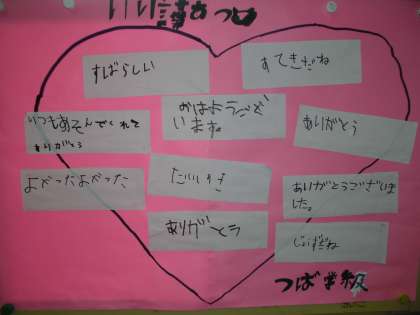 すばらしい
すてきだね
おはようござ
います。
いつもあそんでくれて
ありがとう
ありがとう
よかったよかった
だいすき
ありがとうございま
した。
ありがとう
じょうずだね
つば学級